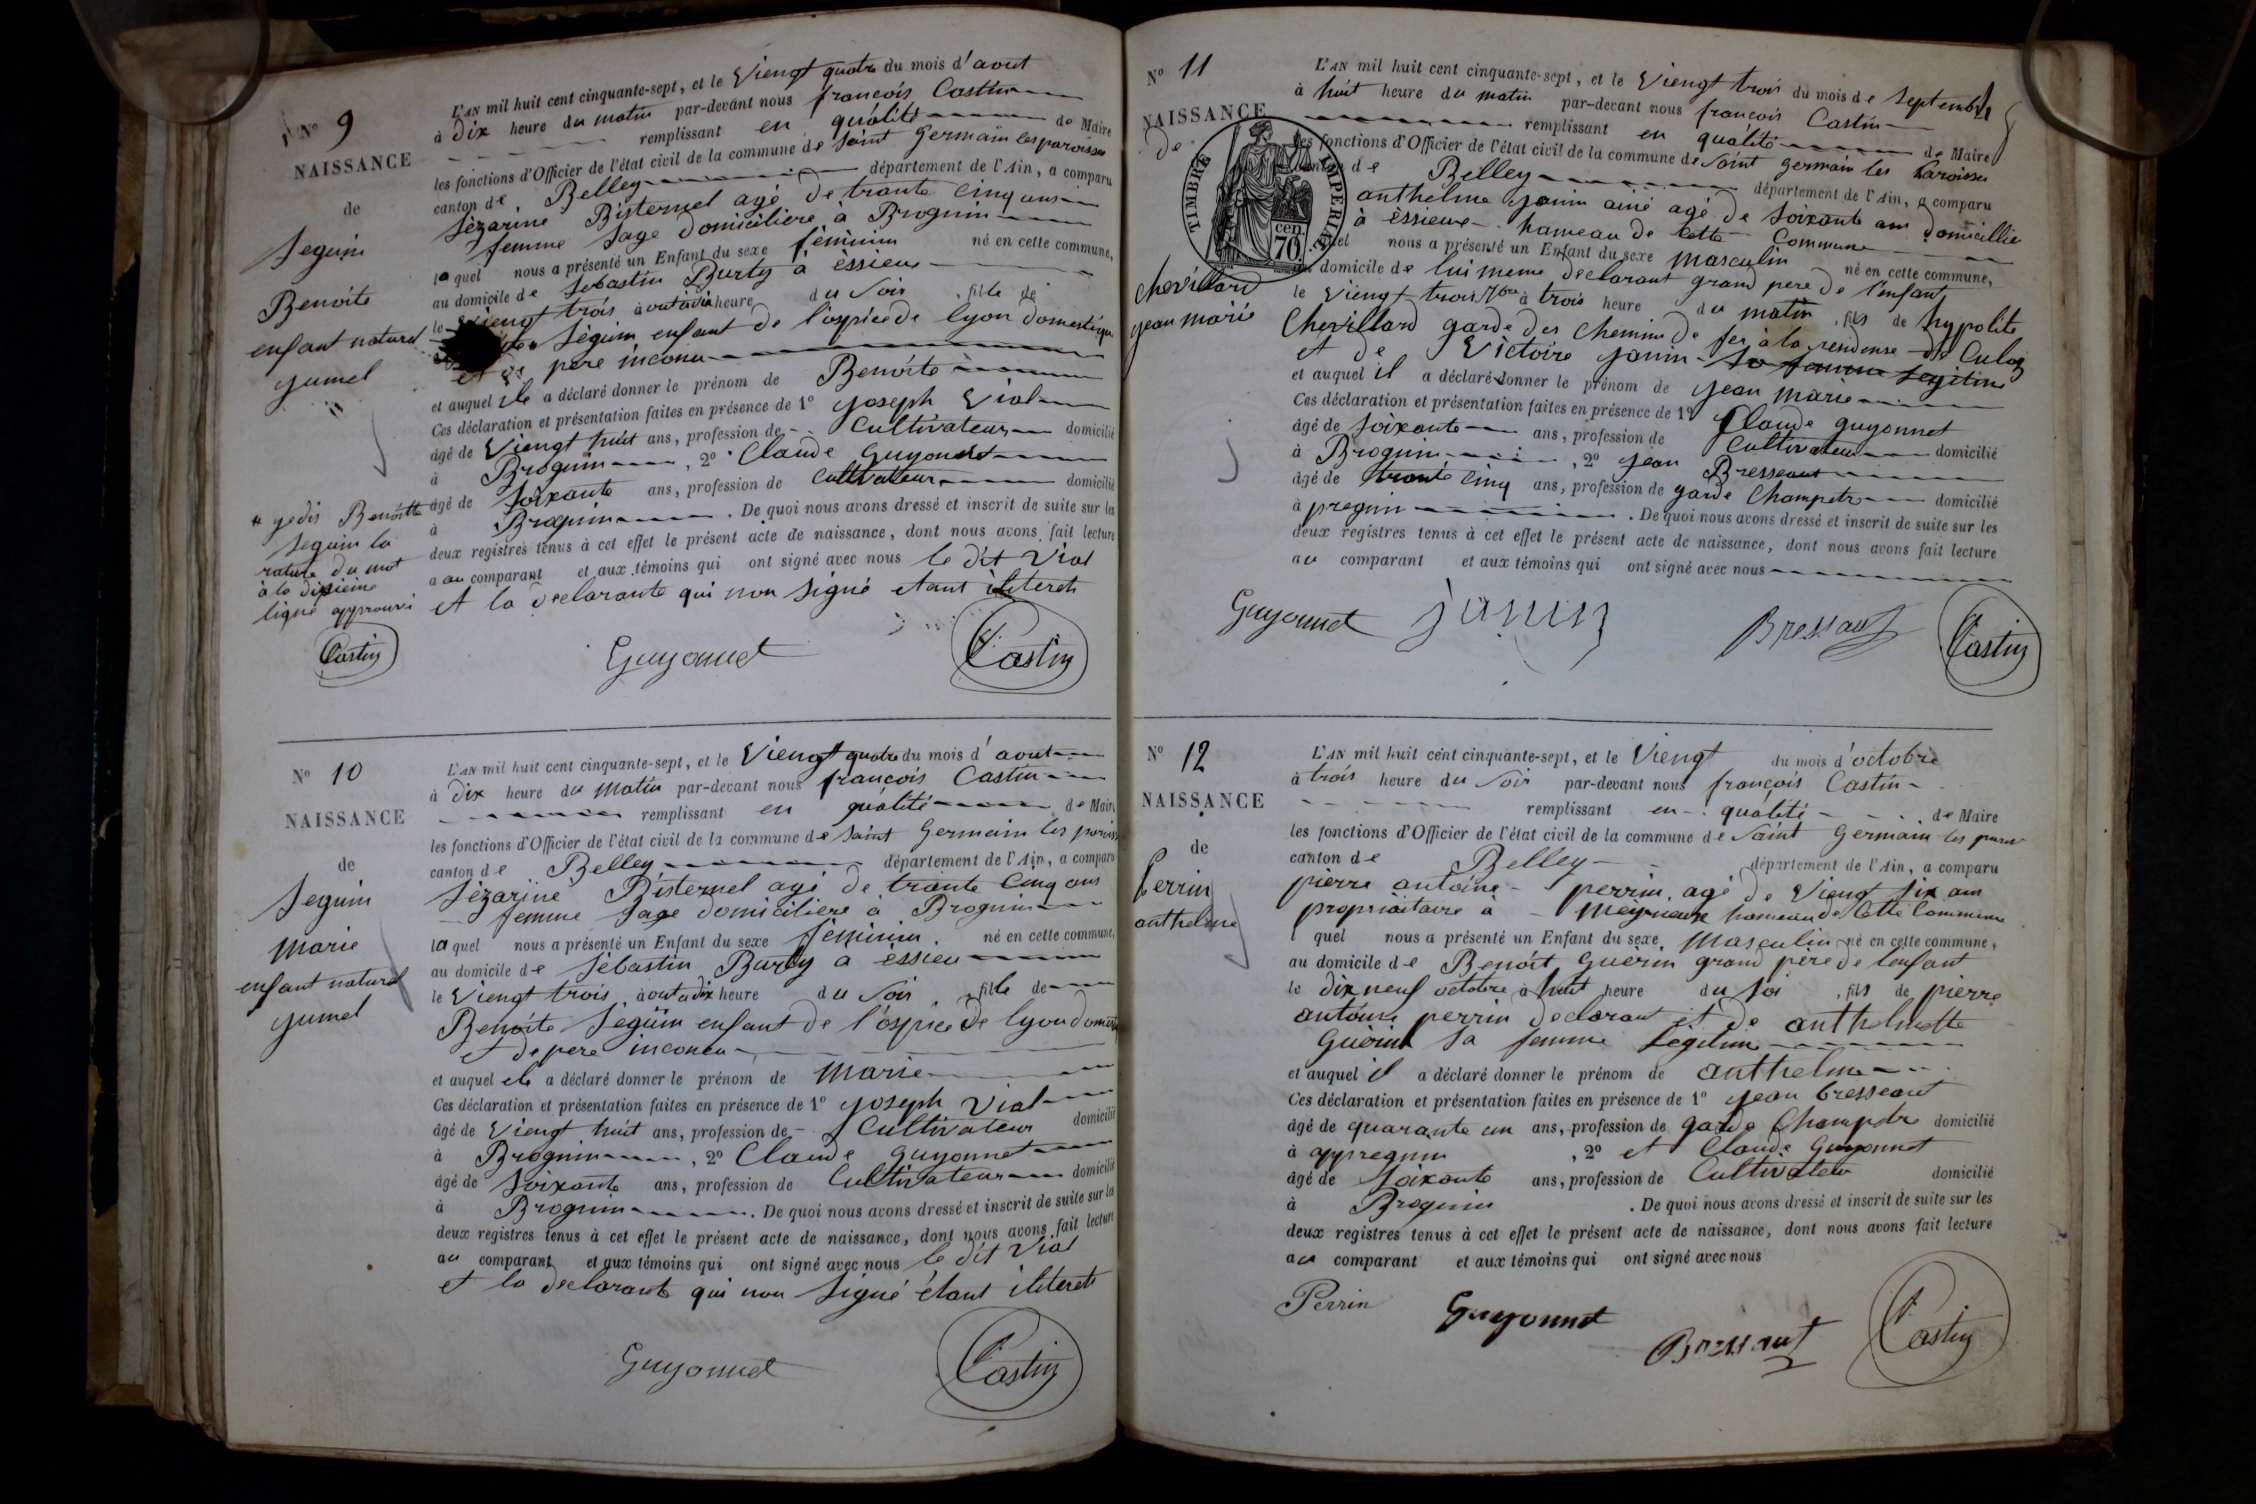 N° 9
NAISSANCE
de
Seguin
Benoite
enfant naturel
jumel
L'AN mil huit cent cinquante-sept, et le Viengt quatre du mois d'aout
à dix heure du matin par-devant nous françois Castin
remplissant en qualité de Maire
les fonctions d'Officier de l'état civil de la commune de Saint Germain les paroisses
canton de Belley département de l'Ain, a comparu
Sèzarine Bisternel agé de trante Cinq ans
femme Sage domicilière à Brognin
laquel nous a présenté un Enfant du sexe féminim né en cette commune,
au domicile de Sebastin Burty à èssieu
le Viengt trois aout à dix heure du Soir, fille de
Séguin enfant de l'ospice de lyon domestique
et de pere inconu
et auquel ele a déclaré donner le prénom de Benoite
Ces déclaration et présentation faites en présence de 1° Joseph Vial
âgé de Viengt huit ans, profession de Cultivateur domicilié
à Brognin, 2° Claude Guyonnet
âgé de Soixante ans, profession de Cultivateur domicilié
à Brognin. De quoi nous avons dressé et inscrit de suite sur les
deux registres tenus à cet effet le présent acte de naissance, dont nous avons fait lecture
a au comparant et aux témoins qui ont signé avec nous le dit Vial
et la declarante qui non Signé etant iliterets
* je dis Benoitte
Seguin la
rature du mot
à la dixième
ligne approuvé
Castin
Guyonnet
Castin
N° 10
NAISSANCE
de
Seguin
marie
enfant naturel
jumel
L'AN mil huit cent cinquante-sept, et le Viengt quatre du mois d'aout
à dix heure du matin par-devant nous françois Castin
remplissant en qualité de Maire
les fonctions d'Officier de l'état civil de la commune de Saint Germain les paroisses
canton de Belley département de l'Ain, a comparu
Sèzarine Bisternel agé de trante Cinq ans
femme Sage domicilière à Brognin
laquel nous a présenté un Enfant du sexe féminim né en cette commune,
au domicile de Sébastin Burty a èssieu
le Viengt trois aout à dix heure du Soir, fille de
Benoite Seguin enfant de l'ospice de lyon domestique
et de pere inconeu
et auquel ele a déclaré donner le prénom de Marie
Ces déclaration et présentation faites en présence de 1° Joseph Vial
âgé de Viengt huit ans, profession de Cultivateur domicilié
à Brognin, 2° Claude Guyonnet
âgé de Soixante ans, profession de Cultivateur domicilié
à Brognin. De quoi nous avons dressé et inscrit de suite sur les
deux registres tenus à cet effet le présent acte de naissance, dont nous avons fait lecture
au comparant et aux témoins qui ont signé avec nous le dit Vial
et la declarante qui non Signé étant iliterets
Guyonnet
Castin
N° 11
NAISSANCE
de
TIMBRE IMPERIAL
70 cen
Chevillard
jean marie
L'AN mil huit cent cinquante-sept, et le Viengt trois du mois de Septembre
à huit heure du matin par-devant nous françois Castin
remplissant en qualité de Maire
les fonctions d'Officier de l'état civil de la commune de Saint germain les Paroisses
canton de Belley département de l'Ain, a comparu
anthelme Janin ainé agé de Soixante ans domicillié
à èssieux hameau de Cette Commune
quel nous a présenté un Enfant du sexe masculin né en cette commune,
au domicile de lui meme declarant grand pere de l'enfant
le Viengt trois 7bre à trois heure du matin, fils de hypolite
Chevillard garde des Chemin de fer à la residense de Culoz
et de Victoire Janin Sa femme Legitime
et auquel il a déclaré donner le prénom de Jean Marie
Ces déclaration et présentation faites en présence de 1° Claude guyonnet
âgé de Soixante ans, profession de Cultivateur domicilié
à Brognin, 2° jean Bresseaut
âgé de trante Cinq ans, profession de garde Champetre domicilié
à pregnin. De quoi nous avons dressé et inscrit de suite sur les
deux registres tenus à cet effet le présent acte de naissance, dont nous avons fait lecture
au comparant et aux témoins qui ont signé avec nous
Guyonnet janin Bressaut Castin
N° 12
NAISSANCE
de
Perrin
anthelme
L'AN mil huit cent cinquante-sept, et le Viengt du mois d'octobre
à trois heure du Soir par-devant nous françois Castin
remplissant en qualité de Maire
les fonctions d'Officier de l'état civil de la commune de Saint Germain les paroi
canton de Belley département de l'Ain, a comparu
pierre antoine perrin agé de Viengt Six ans
propriaitaire à Meyrieux hameau de Cette Commune
l quel nous a présenté un Enfant du sexe Masculin né en cette commune,
au domicile de Benoit Guérin grand père de lenfant
le dix neuf octobre à huit heure du soi, fils de pierre
antoine perrin declarant et de anthelmette
Guérin Sa femme Legitime
et auquel il a déclaré donner le prénom de anthelme
Ces déclaration et présentation faites en présence de 1° jean bresseaut
âgé de quarante un ans, profession de garde Champetre domicilié
à appregnin, 2° et Claude Guyonnet
âgé de Soixante ans, profession de Cultivateur domicilié
à Brognin. De quoi nous avons dressé et inscrit de suite sur les
deux registres tenus à cet effet le présent acte de naissance, dont nous avons fait lecture
au comparant et aux témoins qui ont signé avec nous
Perrin Guyonnet Bressaut Castin